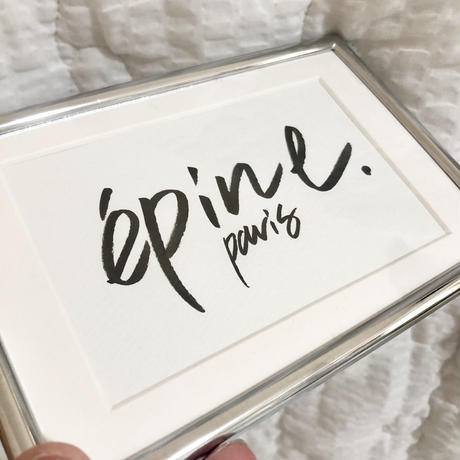 épine.
paris